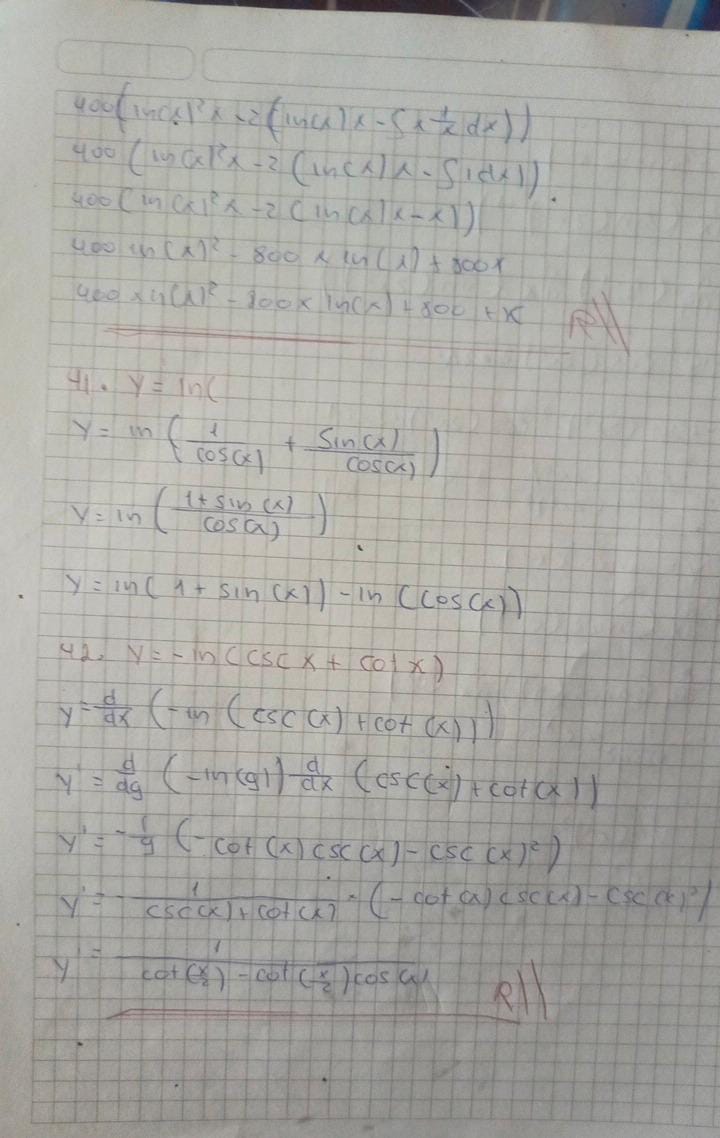 400(ln(x)²x - 2(ln(x)x - ∫x 1/x dx))
400(ln(x)²x - 2(ln(x)x - ∫1dx)).
400(ln(x)²x - 2(ln(x)x - x))
400 ln(x)² - 800 x ln(x) + 800x
400 x ln(x)² - 800x ln(x) + 800 + x R//
41. y = ln(
y = ln(1/cos(x) + sin(x)/cos(x))
y = ln((1 + sin(x))/cos(x))
y = ln(1 + sin(x)) - ln(cos(x))
42. y = -ln(csc x + cot x)
y = d/dx (-ln(csc(x) + cot(x)))
y' = d/dg (-ln(g)) d/dx (csc(x) + cot(x))
y' = -1/g (-cot(x)csc(x) - csc(x)²)
y' = - 1/(csc(x) + cot(x)) · (-cot(x)csc(x) - csc(x)²)
y' = 1/(cot(x/2) - cot(x/2)cos(x)) R//